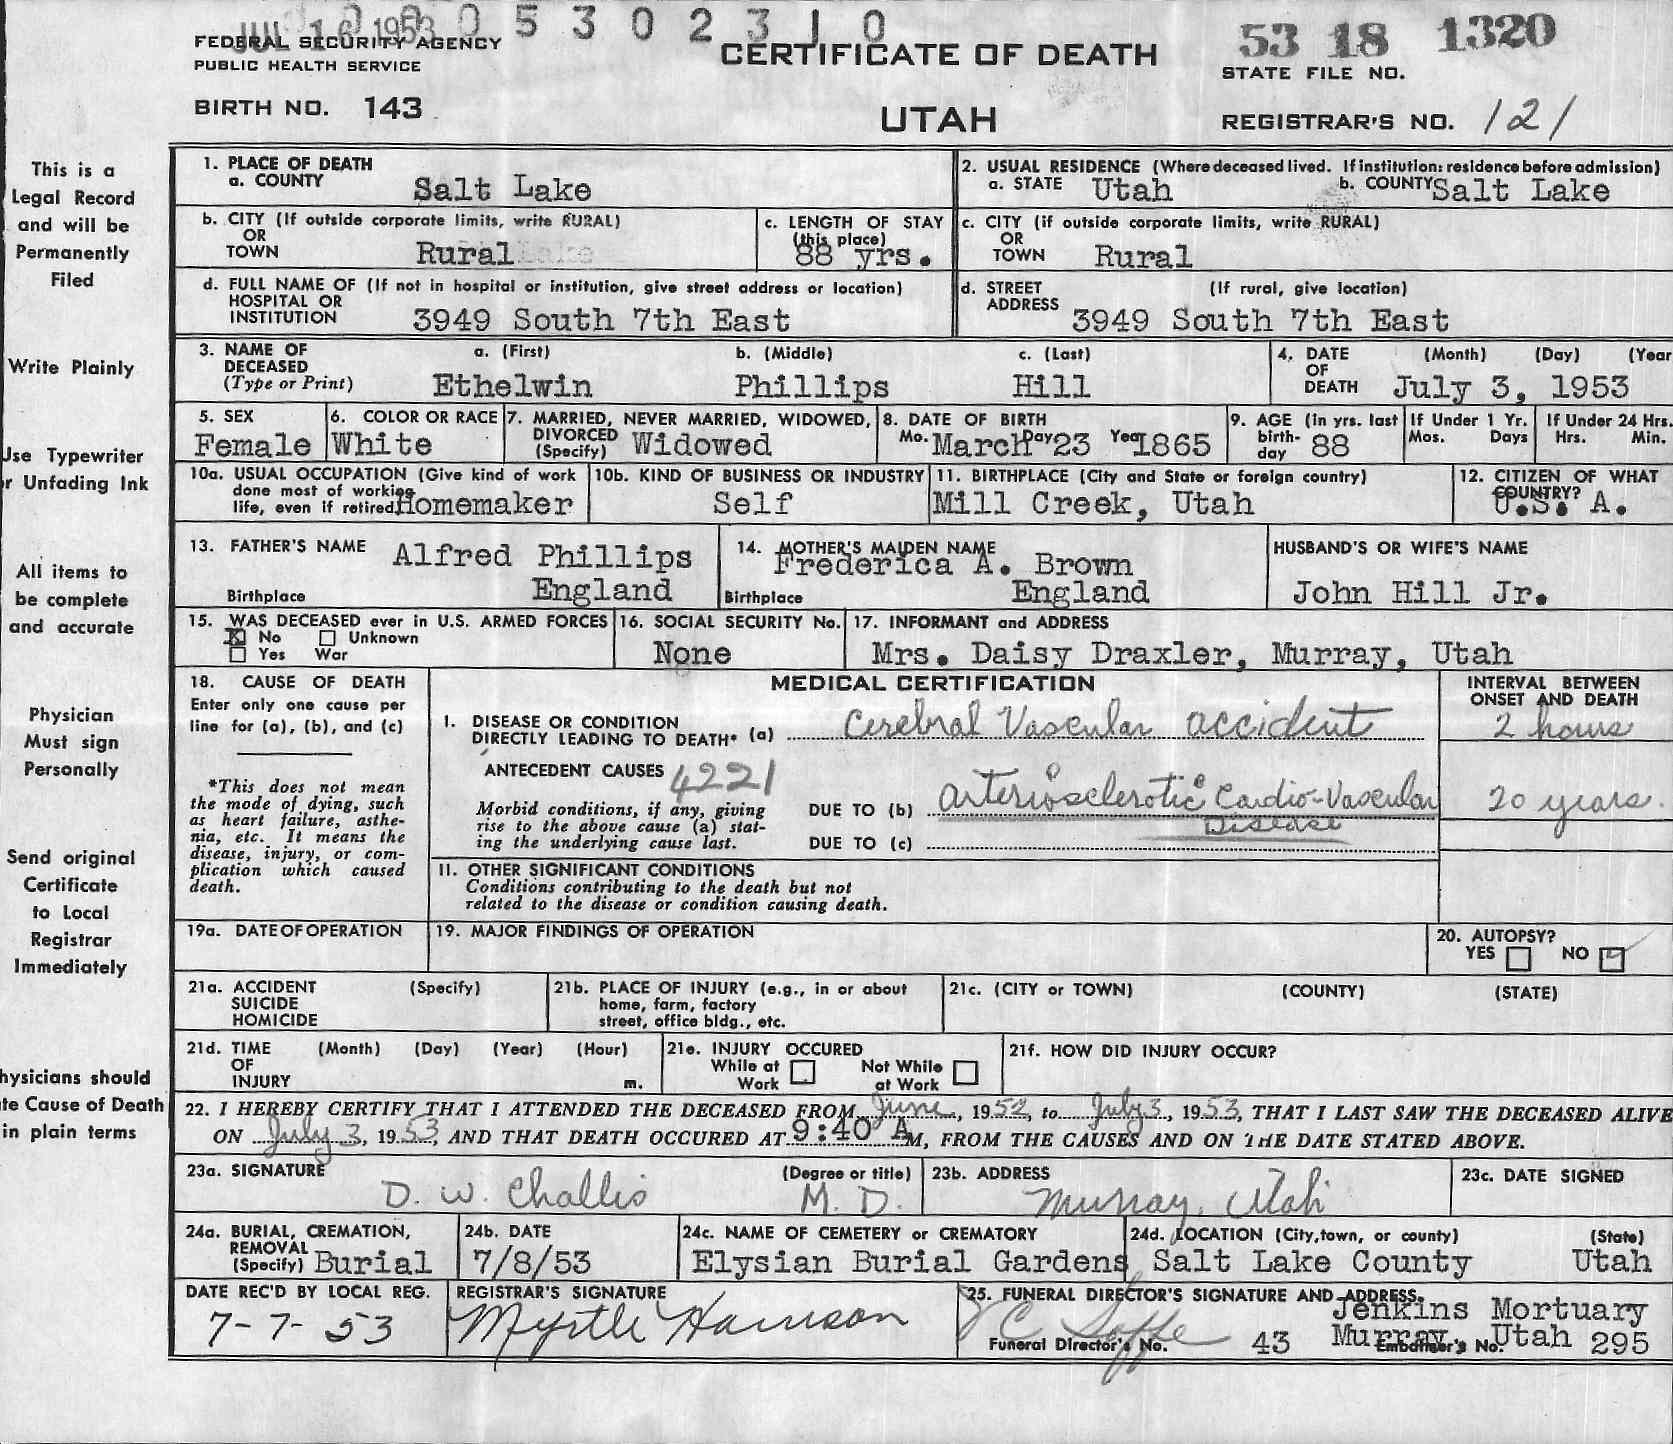 JUL 16 1953 0 5 3 0 2 3 1 0
FEDERAL SECURITY AGENCY
PUBLIC HEALTH SERVICE
BIRTH NO. 143
CERTIFICATE OF DEATH
UTAH
53 18 1320
STATE FILE NO.
REGISTRAR'S NO. 121
This is a
Legal Record
and will be
Permanently
Filed
Write Plainly
Use Typewriter
r Unfading Ink
All items to
be complete
and accurate
Physician
Must sign
Personally
Send original
Certificate
to Local
Registrar
Immediately
hysicians should
te Cause of Death
in plain terms
1. PLACE OF DEATH
a. COUNTY Salt Lake
2. USUAL RESIDENCE (Where deceased lived. If institution: residence before admission)
a. STATE Utah b. COUNTY Salt Lake
b. CITY (If outside corporate limits, write RURAL)
OR
TOWN Rural
c. LENGTH OF STAY
(this place)
88 yrs.
c. CITY (if outside corporate limits, write RURAL)
OR
TOWN Rural
d. FULL NAME OF (If not in hospital or institution, give street address or location)
HOSPITAL OR
INSTITUTION 3949 South 7th East
d. STREET (If rural, give location)
ADDRESS 3949 South 7th East
3. NAME OF a. (First) b. (Middle) c. (Last)
DECEASED
(Type or Print) Ethelwin Phillips Hill
4. DATE (Month) (Day) (Year
OF
DEATH July 3, 1953
5. SEX
Female
6. COLOR OR RACE
White
7. MARRIED, NEVER MARRIED, WIDOWED,
DIVORCED
(Specify) Widowed
8. DATE OF BIRTH
Mo. March Day 23 Year 1865
9. AGE (in yrs. last
birth-
day 88
If Under 1 Yr.
Mos. Days
If Under 24 Hrs.
Hrs. Min.
10a. USUAL OCCUPATION (Give kind of work
done most of working
life, even if retired) Homemaker
10b. KIND OF BUSINESS OR INDUSTRY
Self
11. BIRTHPLACE (City and State or foreign country)
Mill Creek, Utah
12. CITIZEN OF WHAT
COUNTRY?
U.S. A.
13. FATHER'S NAME Alfred Phillips
Birthplace England
14. MOTHER'S MAIDEN NAME
Frederica A. Brown
Birthplace England
HUSBAND'S OR WIFE'S NAME
John Hill Jr.
15. WAS DECEASED ever in U.S. ARMED FORCES
X No Unknown
Yes War
16. SOCIAL SECURITY No.
None
17. INFORMANT and ADDRESS
Mrs. Daisy Draxler, Murray, Utah
18. CAUSE OF DEATH
Enter only one cause per
line for (a), (b), and (c)
*This does not mean
the mode of dying, such
as heart failure, asthe-
nia, etc. It means the
disease, injury, or com-
plication which caused
death.
MEDICAL CERTIFICATION
INTERVAL BETWEEN
ONSET AND DEATH
I. DISEASE OR CONDITION
DIRECTLY LEADING TO DEATH* (a) Cerebral Vascular accident 2 hours
ANTECEDENT CAUSES 4221
Morbid conditions, if any, giving
rise to the above cause (a) stat-
ing the underlying cause last.
DUE TO (b) Arteriosclerotic Cardio-Vascular 20 years.
Disease
DUE TO (c)
11. OTHER SIGNIFICANT CONDITIONS
Conditions contributing to the death but not
related to the disease or condition causing death.
19a. DATE OF OPERATION
19. MAJOR FINDINGS OF OPERATION
20. AUTOPSY?
YES NO ✓
21a. ACCIDENT (Specify)
SUICIDE
HOMICIDE
21b. PLACE OF INJURY (e.g., in or about
home, farm, factory
street, office bldg., etc.
21c. (CITY or TOWN) (COUNTY) (STATE)
21d. TIME (Month) (Day) (Year) (Hour)
OF
INJURY m.
21e. INJURY OCCURED
While at Not While
Work at Work
21f. HOW DID INJURY OCCUR?
22. I HEREBY CERTIFY THAT I ATTENDED THE DECEASED FROM June, 1952, to July 3, 1953, THAT I LAST SAW THE DECEASED ALIVE
ON July 3, 1953, AND THAT DEATH OCCURED AT 9:40 A M, FROM THE CAUSES AND ON THE DATE STATED ABOVE.
23a. SIGNATURE (Degree or title)
D. W. Challis M. D.
23b. ADDRESS
Murray, Utah
23c. DATE SIGNED
24a. BURIAL, CREMATION,
REMOVAL
(Specify) Burial
24b. DATE
7/8/53
24c. NAME OF CEMETERY or CREMATORY
Elysian Burial Gardens
24d. LOCATION (City, town, or county) (State)
Salt Lake County Utah
DATE REC'D BY LOCAL REG.
7-7-53
REGISTRAR'S SIGNATURE
Myrtle Harrison
25. FUNERAL DIRECTOR'S SIGNATURE AND ADDRESS.
Jenkins Mortuary
Murray, Utah
Funeral Director's No. 43 Embalmer's No. 295